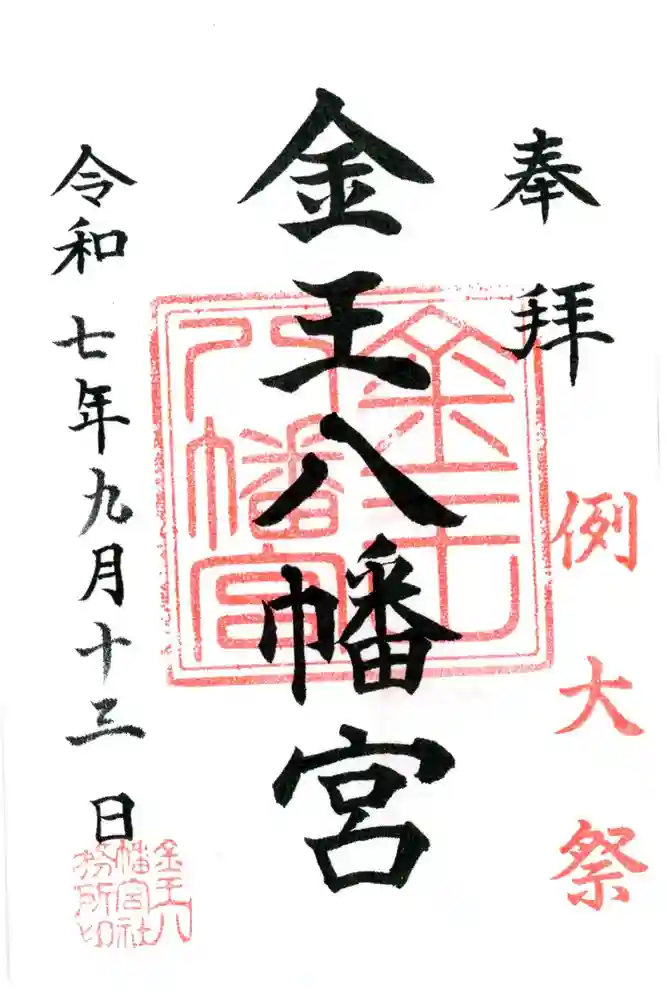 奉拝
例大祭
金王八幡宮
金王八幡宮
令和七年九月十三日
金王八
幡宮社
務所印